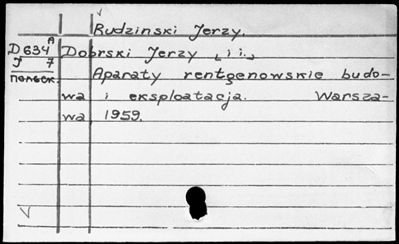 Rudzinski Jerzy.
D634 A Dobrski Jerzy [i i.]
J 7 Aparaty rentgenowskie budo-
польск. wa i eksploatacja. Warsza-
wa, 1959.